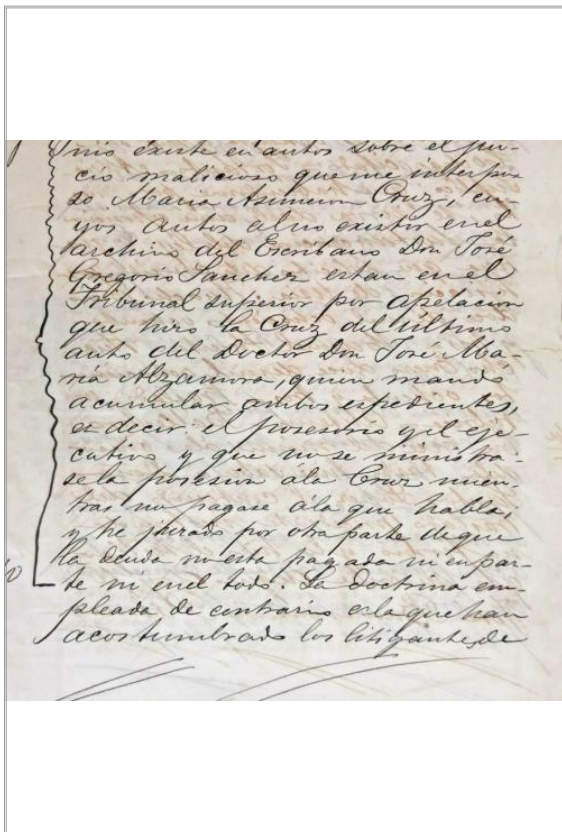 mio existe en autos sobre el jui-
cio malicioso que me interpu-
so Maria Asuncion Cruz, cu-
yos autos al no existir en el
archivo del Escribano Don José
Gregorio Sanchez estan en el
Tribunal superior por apelacion
que hizo la Cruz del último
auto del Doctor Don José Ma-
ria Alzamora, quien mandó
acumular ambos espedientes,
es decir el posesorio y el eje-
cutivo y que no se ministra-
se la posesion á la Cruz mien-
tras no pagase á la que habla,
y he jurado por otra parte de que
la deuda no esta pagada ni en par-
te ni en el todo. La doctrina em-
pleada de contrario es la que han
acostumbrado los litigantes de